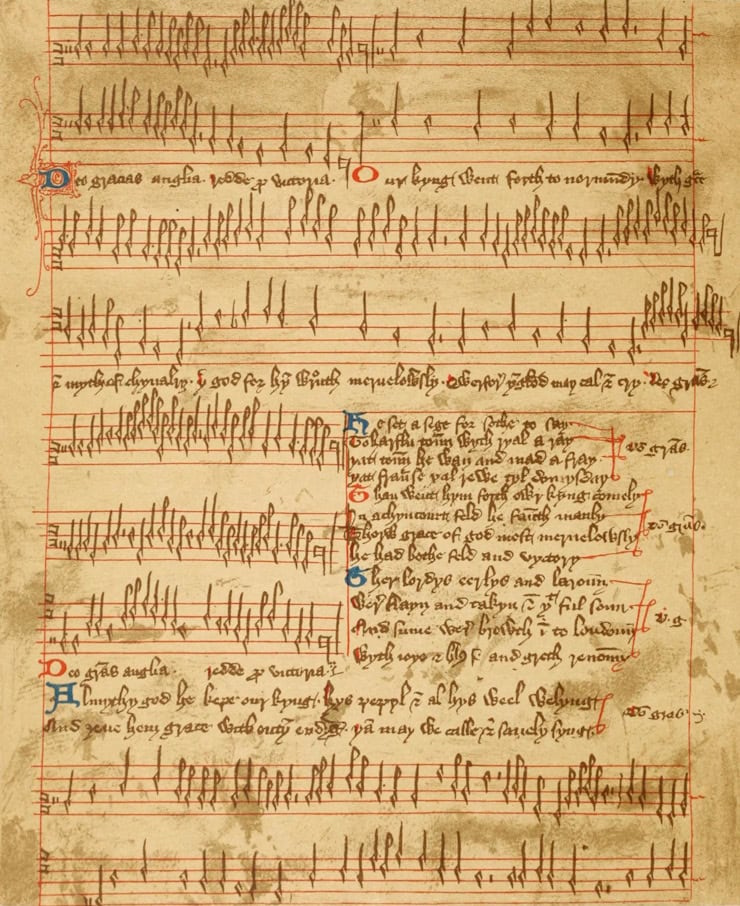 Deo gracias anglia. redde p victoria. Our kyng went forth to normandy. Wyth g̃ce
⁊ myth of chyvalry. Þ god for hym wrouth mervelowsly. Qwerfor ynglond may cal ⁊ cry. Deo gras
He set a sege for sothe to say
To harflu toun wyth ryal aray
þat toun he wan and mad a fray
þat fraunse xal rewe tyl domysday
Deo gras.
Than went hym forth owr kyng comely
In achyncourt feld he fauth manly
Thorw grace of god most mervelowsly
he had bothe feld and vyctory
Deo gras.
Ther lordys eerlys and baroun
Were slayn and takyn ⁊ þt ful soun
And sume were browth in to loundoun
Wyth joye ⁊ blys and greth renoun
D. g
Deo gras anglia. redde p victoria.
Almythy god he kepe our kyng. hys peppl ⁊ al hys weel welyng
And zeve hem grace withoutyn endyng. þan may we calle ⁊ savely syng
Deo gras